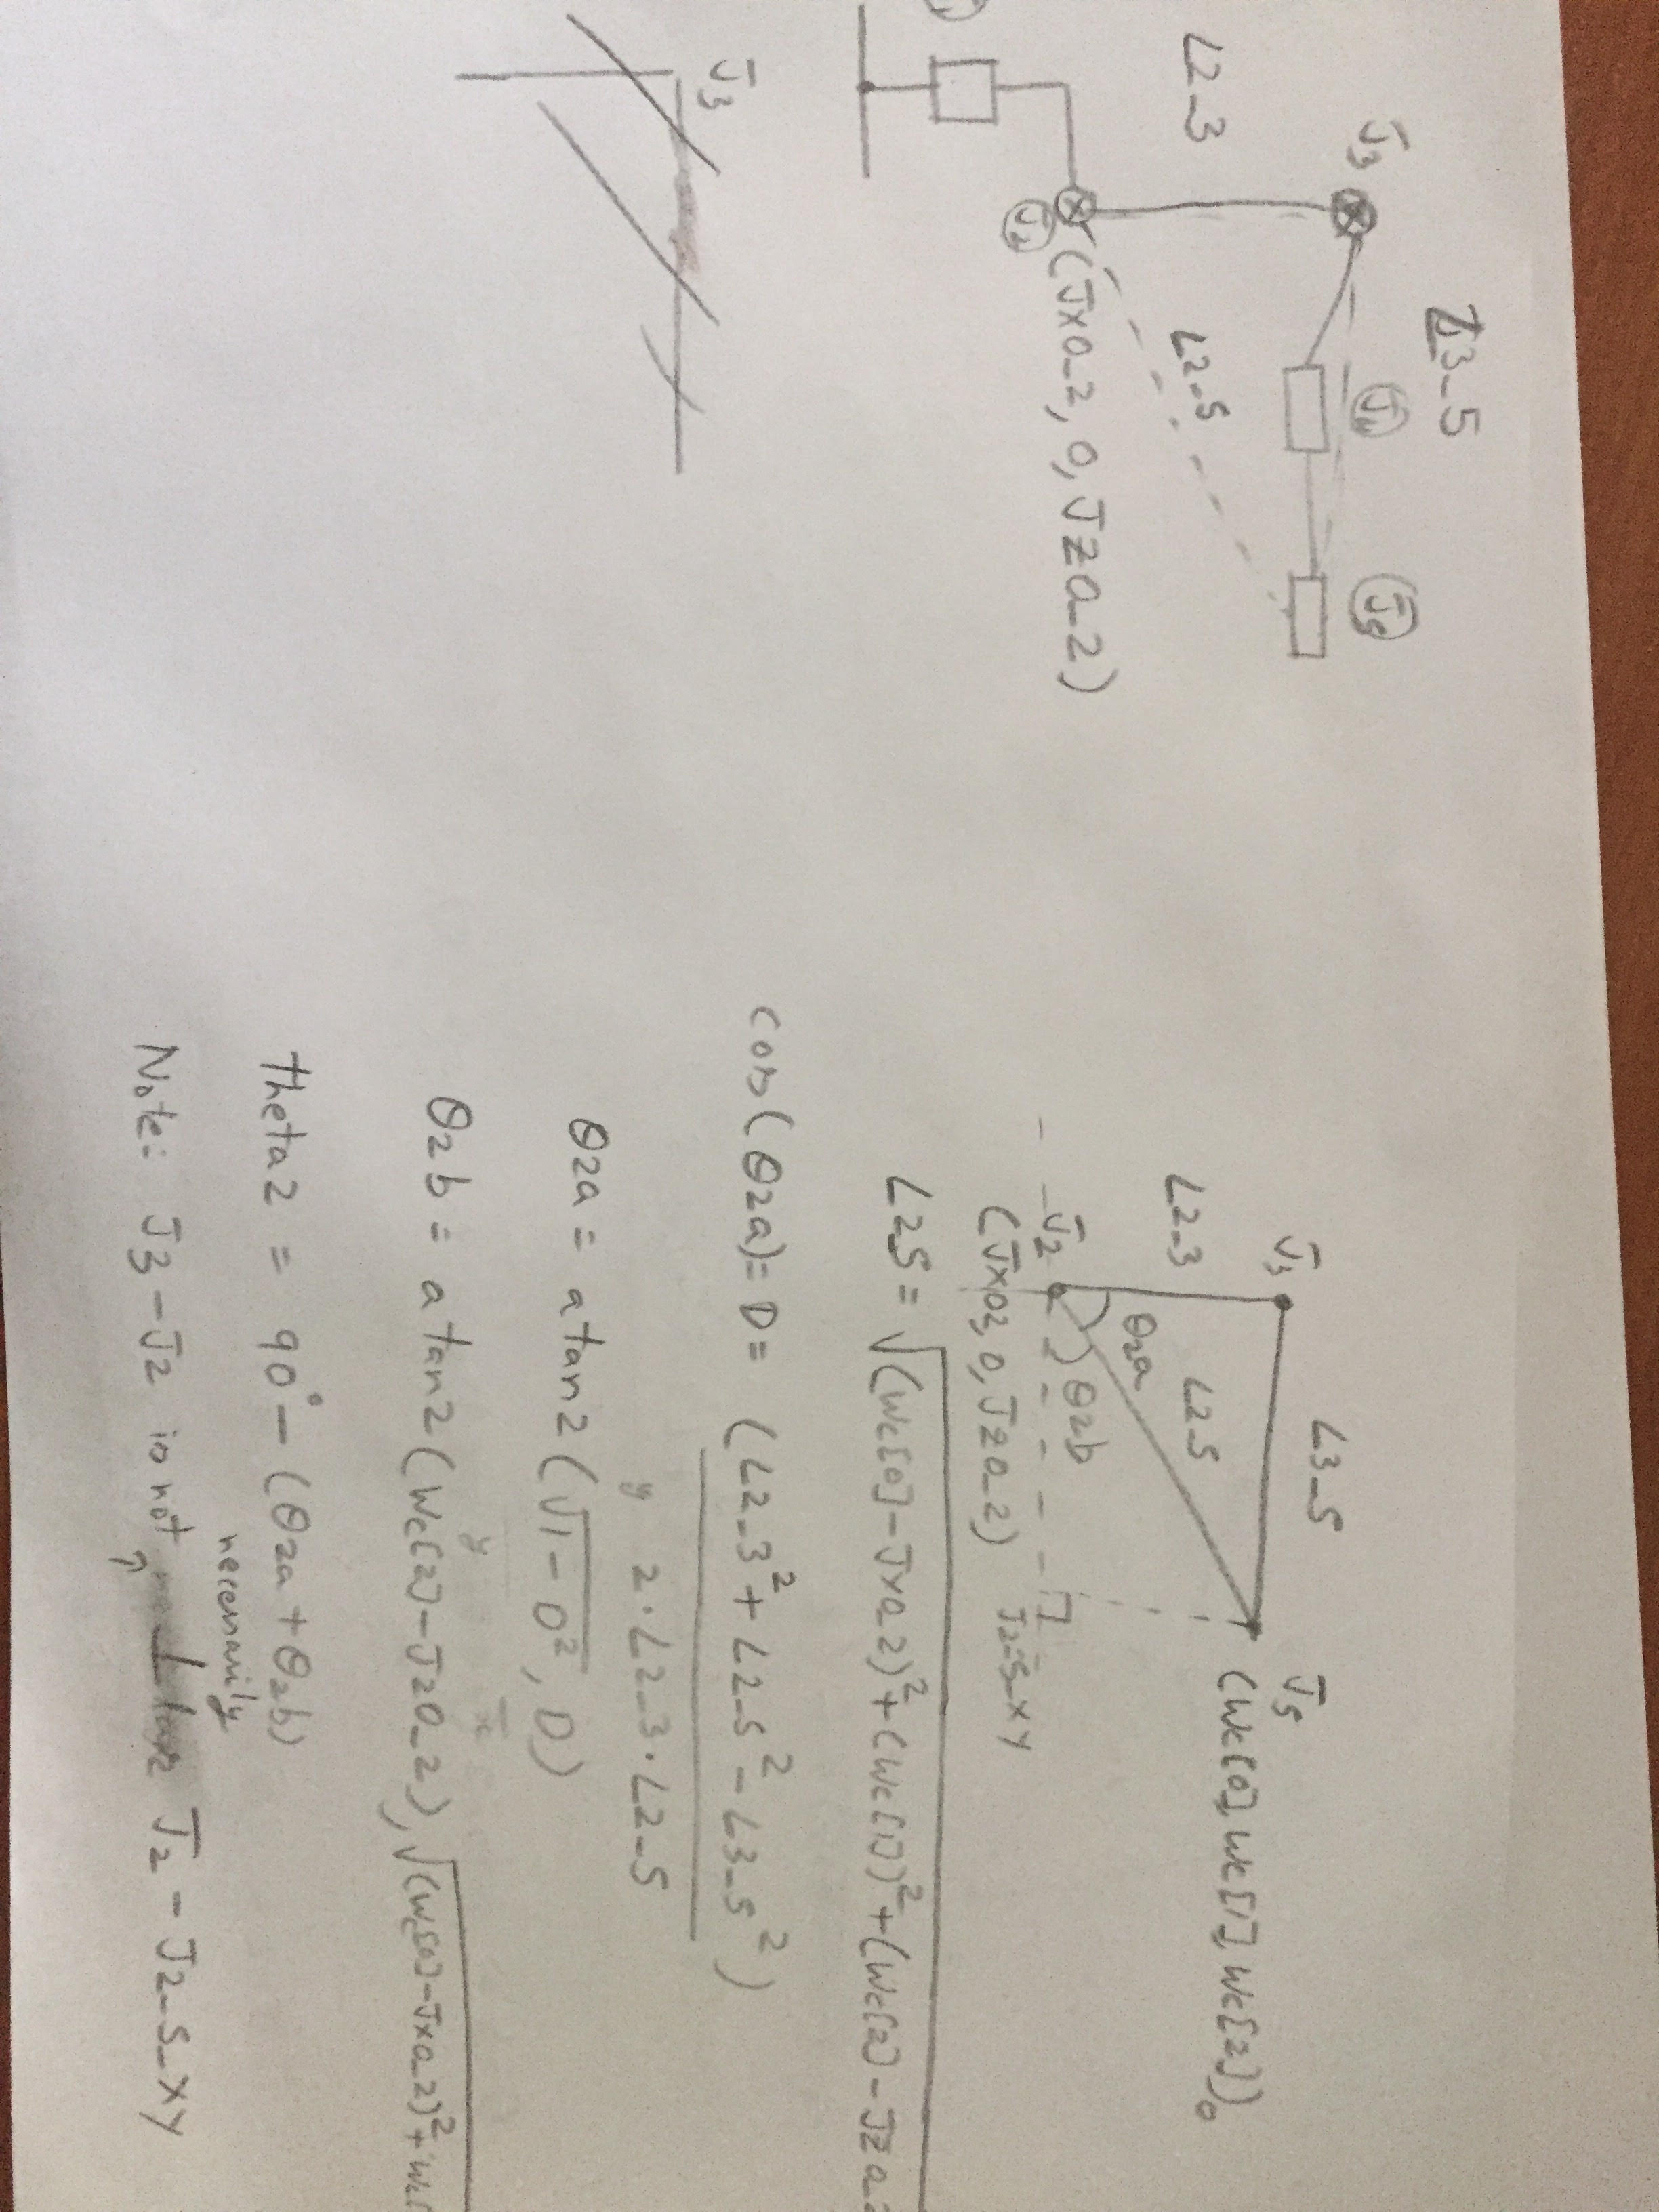 L2_3
J3
L3_5
J4
J5
L2_5
J2
(Jx0_2, 0, Jz0_2)
J3
J3
L3_5
J5
(Wc[0], Wc[1], Wc[2])0
L2_3
θ2a
L2_5
J2
θ2b
J2_5_XY
(Jx02, 0, Jz0_2)
L25 = √(Wc[0]-Jx02)² + (Wc[1])² + (Wc[2]-Jz0_2
cos(θ2a) = D = (L2_3² + L2_5² - L3_5²)
2·L2_3·L2_5
y
θ2a = atan2(√1-D², D)
y
x
θ2b = atan2(Wc[2]-Jz0_2, √(Wc[0]-Jx0_2)² + Wc[
theta2 = 90° - (θ2a + θ2b)
necessarily
Note: J3-J2 is not ⊥ J2-J2_5_XY